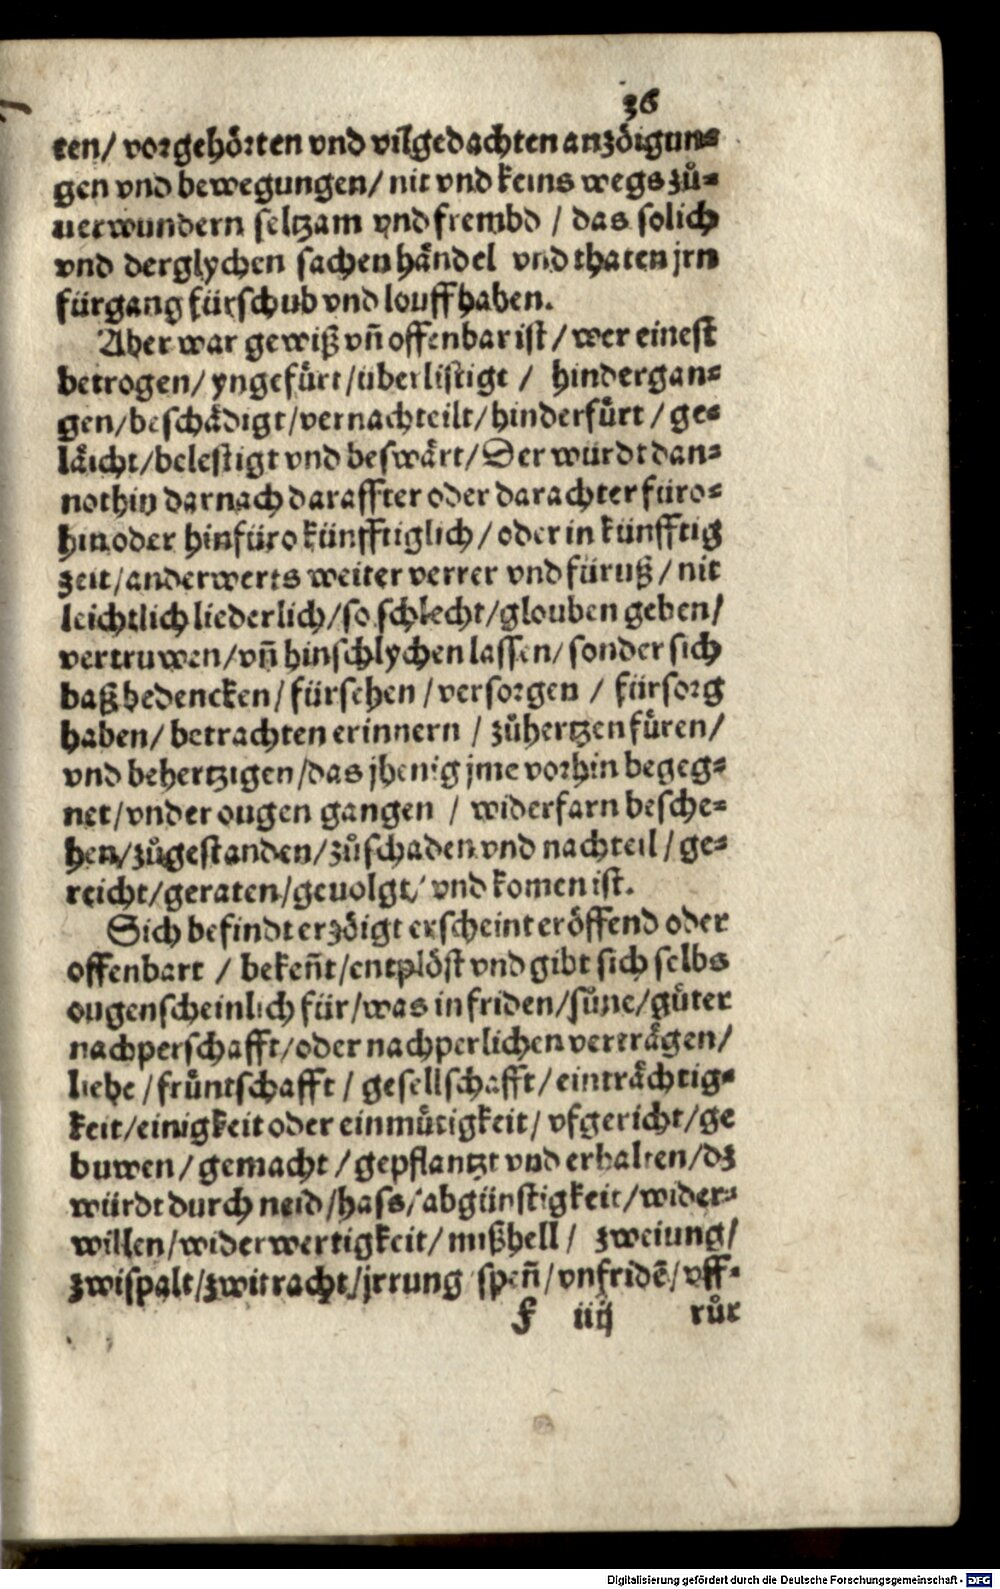 36
ten/ vorgehörten vnd vilgedachten anzöigun⸗
gen vnd bewegungen/ nit vnd keins wegs zuͦ⸗
uerwundern seltzam vnd frembd / das solich
vnd derglychen sachen händel vnd thaten jrn
fürgang fürschub vnd louff haben.
Aber war gewiß vñ offenbar ist / wer einest
betrogen/ yngefuͤrt /überlistigt / hindergan⸗
gen/beschådigt/vernachteilt/hinderfuͤrt / ge⸗
låicht/belestigt vnd beswårt/Der würdt dan⸗
nothin darnach daraffter oder darachter füro⸗
hin oder hinfüro künfftiglich / oder in künfftig
zeit/anderwerts weiter verrer vnd füruß / nit
leichtlich liederlich/so schlecht/glouben geben/
vertruwen/vñ hinschlychen lassen/ sonder sich
baß bedencken/ fürsehen /versorgen / fürsorg
haben/ betrachten erinnern / zuͦhertzen fuͤren/
vnd behertzigen/das jhenig jme vorhin begeg⸗
net/vnder ougen gangen / widerfarn besche⸗
hen/zuͦgestanden/zuͦschaden vnd nachteil / ge⸗
reicht/geraten/geuolgt/ vnd komen ist.
Sich befindt erzöigt erscheint eröffend oder
offenbart / bekeñt/entplöst vnd gibt sich selbs
ougenscheinlich für/was in friden/suͤne/guͤter
nachperschafft/oder nachperlichen verträgen/
liebe /fruͤntschafft / gesellschafft/einträchtig⸗
keit/einigkeit oder einmuͤtigkeit/ vfgericht/ge
buwen/gemacht /gepflantzt vnd erhalten/dz
würdt durch neid/hass/abgünstigkeit/wider⸗
willen/widerwertigkeit/ mißhell / zweiung/
zwispalt/zwitracht/jrrung speñ/vnfridē/vff⸗
f iiij ruͦr
Digitalisierung gefördert durch die Deutsche Forschungsgemeinschaft - DFG